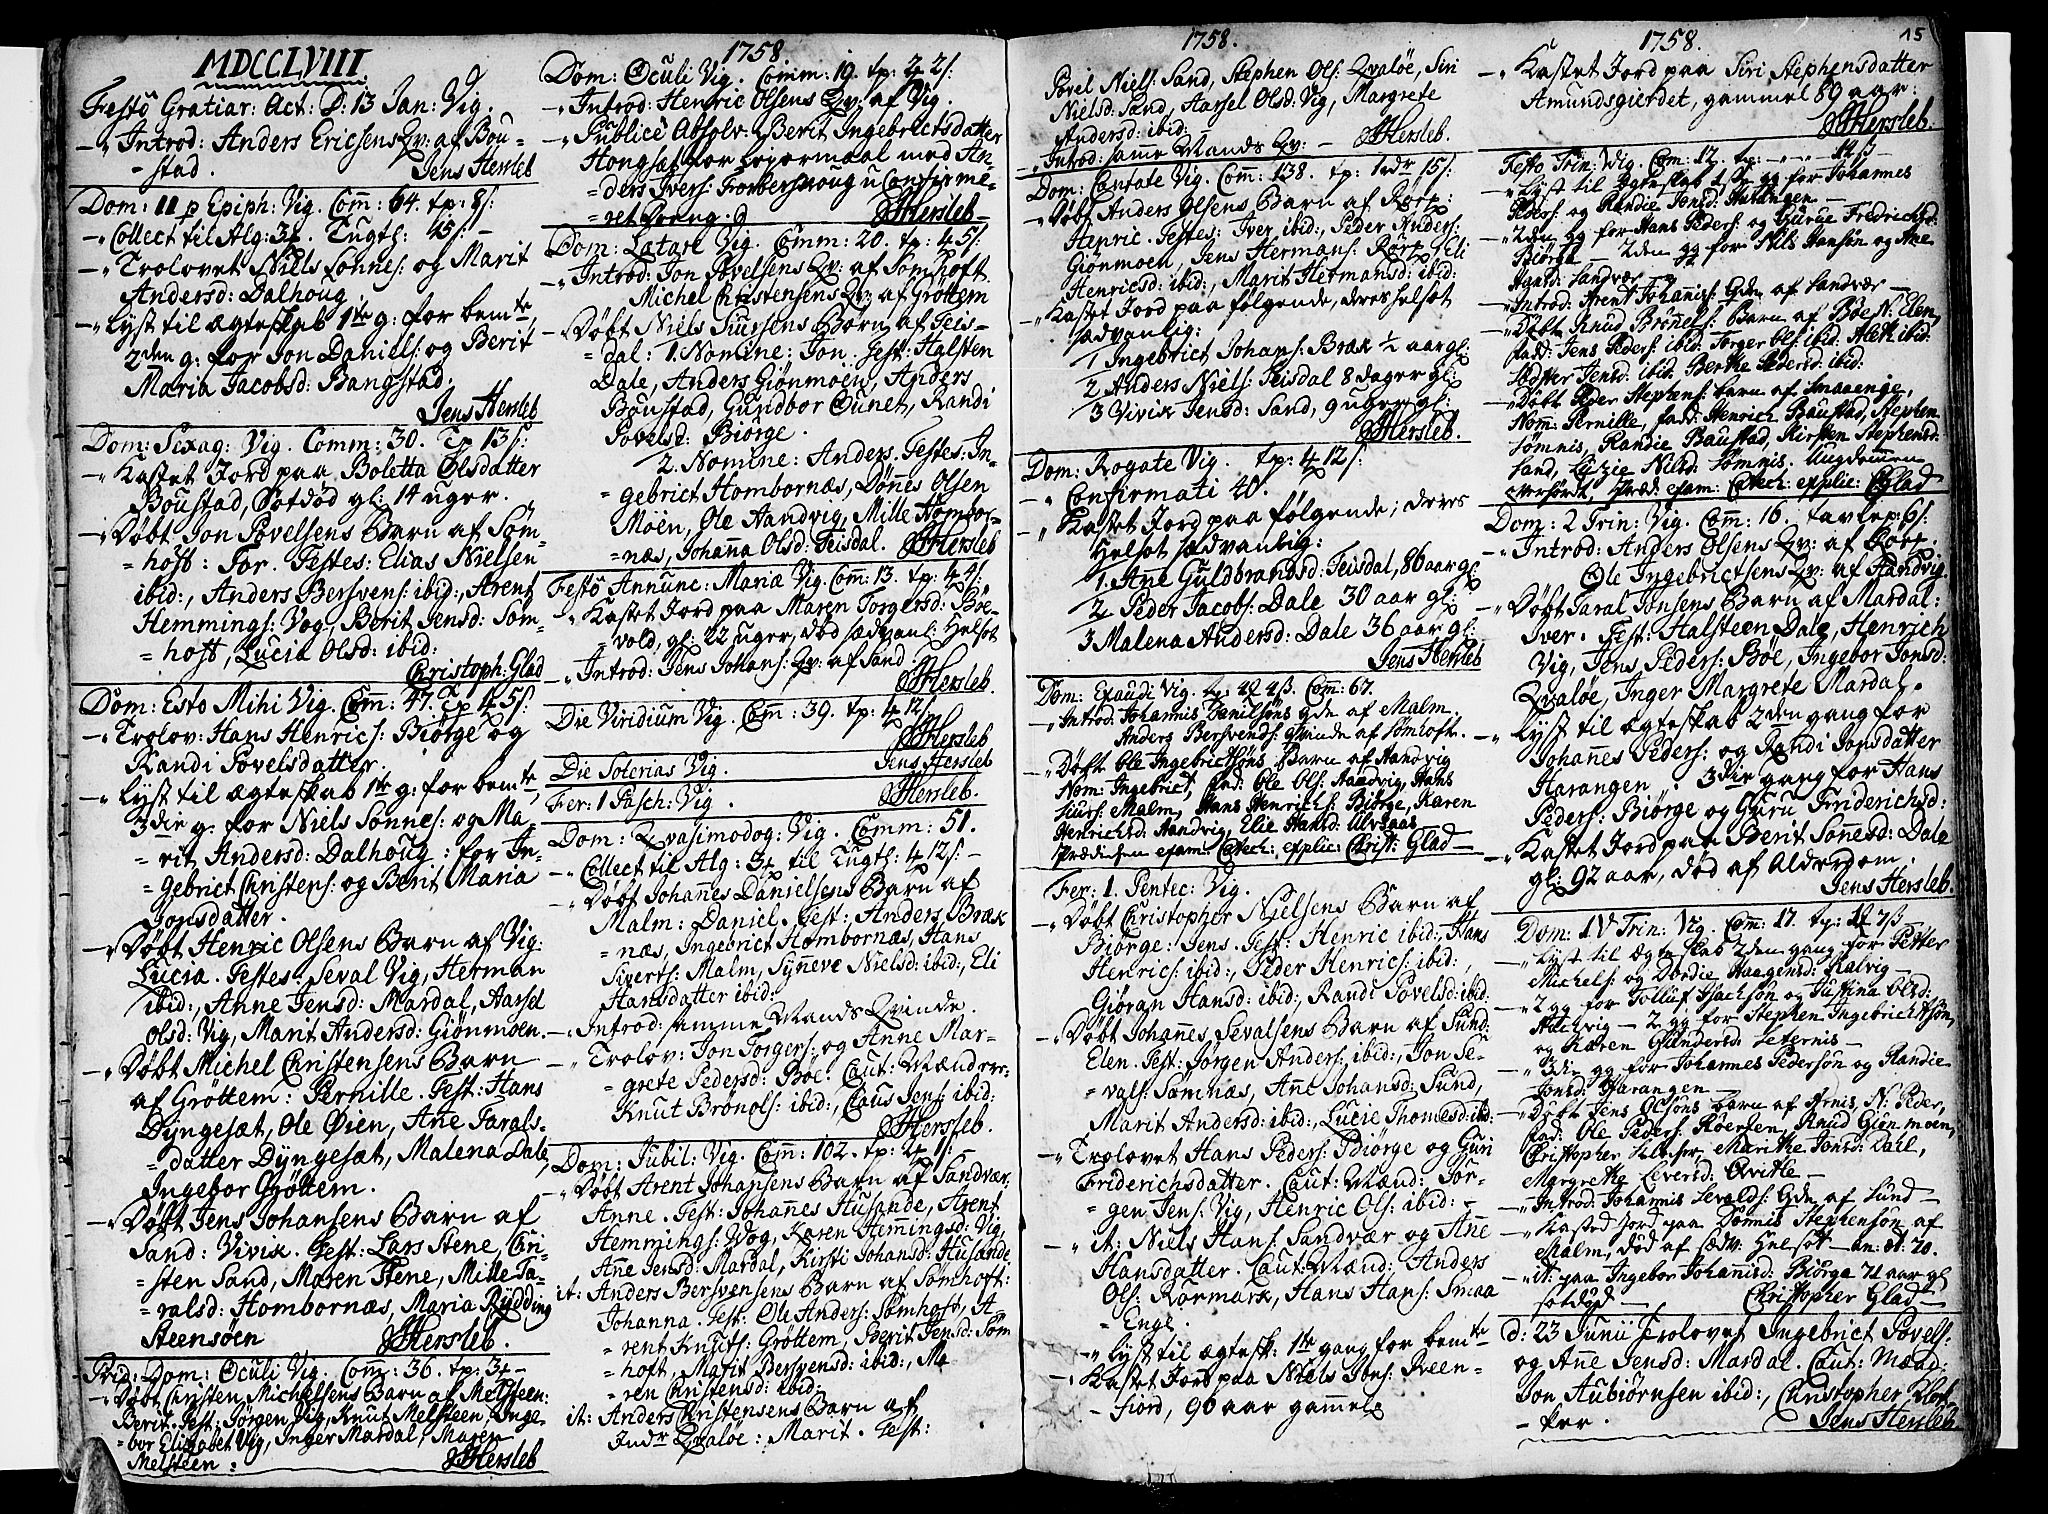 MDCCLVIII.
Festô Gratiar: Act: D: 13 Jan: Vig.
-" Introd: Anders Ericsens Qv: af Bou-
=stad. Jens Hersleb
Dom: II p Epiph: Vig. Com̄: 64. tp: 8/:
-" Collect til Alg: 3 Tugth: 45/: -
-" Trolovet Niels Sonnes: og Marit
Andersd: Dalhoug.
-" Lyst til Ægteskab 1te g: for bemte,
2den g: for Jon Daniels: og Berit
Maria Jacobsd: Bangstad.
Jens Hersleb
Dom: Sexag: Vig. Comm: 30. Tp 13/:
-" Kastet Jord paa Boletta Olsdatter
Boustad, Sotdød gl: 14 uger.
-" Døbt Jon Povelsens Barn af Søm-
=hoft: For. Testes: Elias Nielsen
ibid:, Anders Bersvens: ibid:, Arent
Hemmings: Vog, Berit Jensd: Søm-
=hoft, Lucia Olsd: ibid:
Christoph: Glad
Dom: Esto Mihi Vig. Com̄: 47. Tp 4 5/:
-" Trolov: Hans Henrics: Biørge og
Randi Povelsdatter.
-" Lyst til Ægteskab 1te g: for bemte,
3die g: for Niels Sonnes: og Ma-
=rit Andersd: Dalhoug: for In-
=gebrict Christens: og Berit Maria
Jonsdatter.
-" Døbt Henric Olsens Barn af Vig:
Lucia. Testes: Seval Vig, Herman
ibid:, Anne Jensd: Mardal, Aarsel
Olsd: Vig, Marit Andersd: Giønmoen.
-" Døbt Michel Christensens Barn
af Grøttem: Pernille. Test: Hans
Dyngesæt, Ole Øien, Ane Tarals-
=datter Dyngesæt, Malena Dale,
Ingebor Grøttem.
-" Døbt Jens Johansens Barn af
Sand: Vivik. Test: Lars Stene, Chri-
=sten Sand, Maren Stene, Mille Ta-
=ralsd: Hombornæs, Maria Rydding
Steensøen JHersleb.
Prid: Dom: Oculi Vig. Com̄: 36. tp: 3
-" Døbt Christen Michelsens Barn af Melsteen:
Berit. Test: Jørgen Vig, Knut Melsteen, Inge-
=bor Elisabet Vig, Inger Mardal, Maren
Melsteen: JHersleb
1758
Dom: Oculi Vig. Comm: 19. tp: 2 2/:
-" Introd: Henric Olsens Qv: af Vig.
-" Publicè Absolv. Berit Ingebrictsdatter
Hongsæt for Leiermaal med An-
=ders Ivers: Forbershoug uConfirme-
=ret Dreng. JHersleb
Dom: Lætare Vig. Comm: 20. tp: 4 5/:
-" Introd: Jon Povelsens Qv: af Sømhoft.
Michel Christensens Qv: af Grøttem
-" Døbt Niels Siursens Børn af Teis-
=dal: 1. Nomine: Jon. Test: Halsten
Dale, Anders Giønmoen, Anders
Boustad, Gundbor Sunet, Randi
Povelsd: Biørge.
2. Nomine: Anders. Testes: In-
=gebrict Hombornæs, Dønes Olsen
Moen, Ole Aandvig, Mille Hombor-
=næs, Johanna Olsd: Teisdal. JHersleb
Festô Annunc: Mariæ Vig. Com̄: 13. tp: 4 4/:
-" Kastet Jord paa Maren Torgersd: Bøe-
vold, gl: 22 uger, død sædvanl: Helsot
-" Introd: Jens Johans: Qv: af Sand.
JHersleb.
Die Viridium Vig. Com̄: 39. tp: 4 12/.
JHersleb
Die Soterias Vig. Jens Hersleb
Fer: 1 Pasch: Vig. JHersleb.
Dom: Qvasimodog: Vig. Comm: 51.
-" Collect til Alg: 3 til Tugth: 4 12/: -
-" Døbt Johañes Danielsens Barn af
Malm: Daniel. Test: Anders Bræk
=næs, Ingebrict Hombornæs, Hans
Siverts: Malm, Syneve Nielsd: ibid:, Eli
Hansdatter ibid:
-" Introd: samme Mands Qvinde.
-" Trolov: Jon Torgers: og Anne Mar-
=grete Pedersd: Bøe. Caut: Mænd ere:
Knut Brønols: ibid:, Claus Jens: ibid:
JHersleb.
Dom: Jubil: Vig. Com̄: 102. tp: 2 1/: -
-" Døbt Arent Johansens Barn af Sandvær,
Anne. Test: Johañes Husande, Arent
Hemmings: Vog, Karen Hem̄ingsd: Vig,
Ane Jensd: Mardal, Kirsti Johansd: Husande
it: Anders Bersvensens Barn af Sømhoft:
Johanna. Test: Ole Anders: Sømhoft, A-
=rent Knuts: Grøttem, Berit Jensd: Søm
=hoft, Marit Bersvensd: ibid:, Ma
=ren Christensd: ibid:
it: Anders Christensens Barn af
Indr Qvaløe: Marit. Test:
1758.
Povel Niels: Sand, Stephen Ols: Qvaløe, Siri
Nielsd: Sand, Aarsel Olsd: Vig, Margrete
Andersd: ibid:
-" Introd: samme Mands Qv: - JHersleb.
Dom: Cantate Vig. Comm: 138. tp: 1ndr 15/:
-" Døbt Anders Olsens Barn af Rørp:
Henric. Testes: Iver ibid:, Peder Anders:
Giønmoen, Jens Hermans: Rørp, Eli
Henricsd: ibid:, Marit Hermansd: ibid:
-" Kastet Jord paa følgende, deres Helsot
sædvanlig:
1 Ingebrict Johans: Bræk ½ aar gl:
2 Anders Niels: Teisdal 8 dager gl:
3 Vivik Jensd: Sand, 9 uger gl:
JHersleb.
Dom: Rogate Vig. tp: 4 12/:
-" Confirmati 40.
-" Kastet Jord paa følgende; deres
Helsot sædvanlig:
1. Ane Guldbrandsd: Teisdal, 86 aar gl:
2. Peder Jacobs: Dale 30 aar gl:
3 Malena Andersd: Dale 36 aar gl:
Jens Hersleb
Dom: Exaudi Vig. tp: 4 4ß. Com̄: 67.
-" Introd: Johannis Danilsøns qde af Malm.
Anders Bersvends: qvinde af Sømhoft.
-" Døbt Ole Ingebrictsøns Barn af Handvig
Nom: Ingebrict, fad: Ole Ols: Haadvig, Hans
Siurs: Malm, Hans Henrichs: Biørge, Karen
Henrichsd: Handvig, Elie Hansd: Ulvsaas
Prædichen exam: Catech: explic: Christ: Glad -
Fer: 1. Pentec: Vig.
-" Døbt Christopher Nielsens Barn af
Biørge: Jens. Test: Henric ibid:, Hans
Henrics: ibid:, Peder Henrics: ibid:,
Giøran Hansd: ibid:, Randi Povelsd: ibid:
-" Døbt Johañes Sevalsens Barn af Sund:
Elen. Test: Jørgen Anders: ibid:, Jon Se-
=vals: Sømnæs, Ane Johansd: Sund,
Marit Andersd: ibid:, Lucie Thomesd: ibid:
-" Trolovet Hans Peders: Biørge og Guri
Friderichsdatter. Caut: Mænd: Jør-
=gen Jens: Vig, Henric Ols: ibid: -
-" it: Niels Hans: Sandvær og Ane
Hansdatter. Caut: Mænd: Anders
Ols: Rørmark, Hans Hans: Smaa
=Enge.
-" Lyst til Ægtesk: 1te gang for bemte
-" Kastet Jord paa Niels Jons: Sveen-
=fiord, 90 aar gammel.
1758. 15
-" Kastet Jord paa Siri Stephensdatter
Amundsgierdet, gammel 89 aar:
JHersleb.
Festo Trin: Vig. Com: 12. tp: 14ß -
-" Lyst til Ægteskab 1ste gg for Johannes
Peders: og Randie Jonsd: Harangen -
-" 2den gg for Hans Peders: og Gurue Fredrichsd:
Biørge - 2den gg for Nils Hansøn og Ane
Hansd: Sandvær -
-" Introd: Arent Johanis: Qden af Sandvær -
-" Døbt Knud Brønels: Barn af Bøe N: Elen,
fadd: Jens Peders: ibid: Torger Ols: ibid: Aleth ibid:
Sødster Jensd: ibid: Berthe Pedersd: ibid:
-" Døbt Peder Stephens: barn af Smaaenge,
Nom: Pernille, fadd: Henrich Baustad, Stephen
Sømnis, Randie Baustad, Kirsten Stephensd:
Sand, Luzie Nilsd: Sømnis. Ungdommen
overhørdt, Præd: exam: Catech: explic: CGlad
Dom: 2 Trin: Vig. Com̄: 16. tavlep: 6/:
-" Introd: Anders Olsens Qv: af Rorp.
Ole Ingebrictsens Qv: af Handvig.
-" Døbt Taral Jonsens Barn af Mardal:
Iver. Test: Halsteen Dale, Henrich
Vig, Jens Peders: Bøe, Ingebor Jonsd:
Qvaløe, Inger Margrete Mardal.
-" Lyst til Ægteskab 2den gang for
Johañes Peders: og Randi Jonsdatter
Harangen: 3die gang for Hans
Peders: Biørge og Guru Friderichsd:
-" Kastet Jord paa Berit Sonnesd: Dale
gl: 92 aar, død af Alderdom.
Jens Hersleb.
Dom: IV Trin: Vig. Com̄: 17. tp: 1 7ß
-" Lyst til Ægteskab 2den gang for Petter
Michels: og Dordie Haagensd: Kalvig -
-" 2 gg for Tolluf Isachsøn og Justina Olsd:
Aachvig - 2 gg for Stephen Ingebrichtsøn,
og Karen Gundersd: Seternis -
-" 3die gg for Johannes Pedersøn og Randie
Jonsd: Harangen -
-" Døbt Jens Olsøns barn af Arnis, N: Peder,
fad: Ole Peders: Roersen, Knud Giønmoen,
Christopher, Marithe Jonsd: Dall,
Margrethe Leversd: Qvitte -
-" Introd: Johannis Sevalds: Qde af Sund -
-" Kasted Jord paa Dønnis Stephensøn af
Malm, død af sædv: Helsot - an: æt. 70.
-" it: paa Ingebor Johanisd: Biørge 71 aar gl
sotdød - Christopher Glad -
d: 23 Junii Trolovet Ingebrict Povels:
og Ane Jensd: Mardal. Caut: Mænd:
Jon Aubiørnsen ibid:, Christopher Kloc-
=ker. Jens Hersleb.